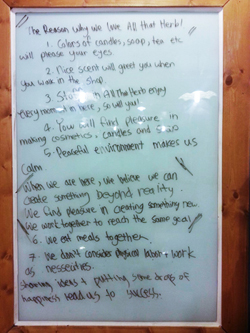 The Reason why we love All that Herb!
1. Colors of candles, soap, tea etc
will please your eyes
2. Nice scent will greet you when
you work in the shop.
3. in All the Herb enjoy
every moment in here, so will you!
4. You will find pleasure in
making cosmetics, candles and
5. Peaceful environment makes us
calm.
When we are here, we believe we can
create something beyond reality.
We find pleasure in creating something new.
We work together to reach the same goal
6. We eat meals together.
7. We don't consider physical labor + work
as
sharing ideas & putting some drops of
happiness lead us to success.